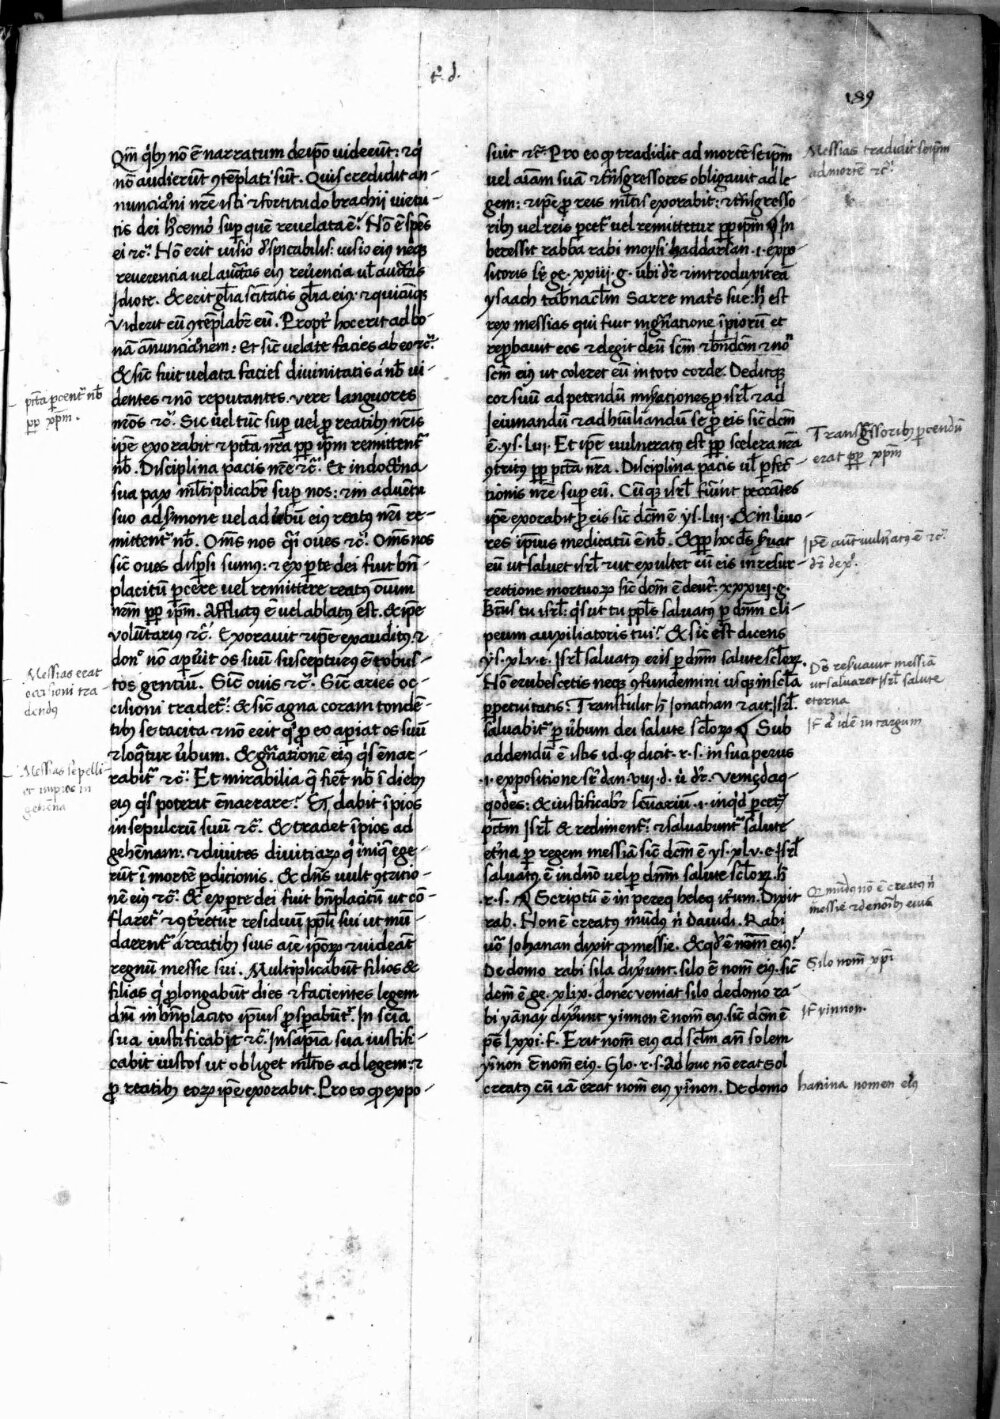 t. d.
189
Qm̄ qͥbꝫ nō ē narratum de ip̄o uiderūt: ⁊ q̄
nō audierūt ꝯtēplati sūt. Quis credidit an-
nunciac̄oni nr̄e isti ⁊ fortitudo brachii uirtu-
tis dei sup quē reuelata ē? Nō ē spēs
ei ⁊c̄. Nō erit uisio despicabilis: uisio eiꝰ neqꝫ
reuerencia uel auctas eiꝰ reuencia ul̄ auctas
idiote. & erit gl̄ia scītatis gl̄ia eiꝰ: ⁊ quicūqꝫ
uiderit eū ꝯtēplabr̄ eū. Propt̄ hoc erit ad bo-
nā annunciac̄onem: Et sic̄ uelate facies ab eo ⁊c̄.
& sic̄ fuit uelata facies diuinitatis a nb̄ ui-
dentes ⁊ nō reputantes. vere languores
nr̄os ⁊c̄. Sic uel tūc sup uel p reatibꝫ nr̄is
ip̄e exorabit ⁊ pctā nr̄a pp ip̄m remittent̄
nb̄. Disciplina pacis nr̄e ⁊c̄. Et in doct̄na
sua pax ml̄tiplicabr̄ sup nos: ⁊ in aduētu
suo ad sermone uel ad ūbū eiꝰ reatꝰ nr̄i re-
mittent̄ nb̄. Om̄s nos q̄i oues ⁊c̄. Om̄s nos
sic̄ oues dispersi sumꝰ: ⁊ ex p̱te dei fuit bn̄-
placitū pcere uel remittere reatꝰ oīum
nr̄m pp ip̄m. Afflictꝰ ē uel ablatꝰ est. & ip̄e
uoluntariꝰ ⁊c̄. Exorauit ⁊ ip̄e exauditꝰ. ⁊
don̄ nō apuit os suū suscepturꝰ ē robus-
tos gentiū. Sic̄ ouis ⁊c̄. Sic̄ aries oc-
cisioni tradet̄: & sic̄ agna coram tondē-
tibꝫ se tacita ⁊ nō erit qͥ p eo apiat os suū
⁊ loqͣtur ūbum. & gn̄ationē eiꝰ qͥs enar-
rabit ⁊c̄. Et mirabilia q̄ fiēt nb̄ ī diebꝫ
eiꝰ qͥs poterit enarrare? Et dabit īpios
in sepulcrū suū ⁊c̄. & tradet īpios ad
gehēnam: ⁊ diuites diuitiaꝝ qͥ iniq̄ ege-
rūt ī mortē pdicionis. & dn̄s uult ꝯtricio-
nē eiꝰ ⁊c̄. & ex p̱te dei fuit bn̄placitū ut cō-
flaret̄ ⁊ ꝯtreretur residuū ppl̄i sui ut mū-
darent̄ a reatibꝫ suis aīe ip̄oꝝ ⁊ uideāt
regnū messie sui. Multiplicabūt filios &
filias qͥ plongabūt dies ⁊ facientes legem
dm̄ in bn̄placito ip̄ius pspabūt̄. In scīa
sua iustificabit ⁊c̄. In sap̄ia sua iustifi-
cabit iustos ut obliget ml̄tos ad legem: ⁊
p reatibꝫ eoꝝ ip̄e exorabit. Pro eo ꝙ expo-
suit ⁊c̄. Pro eo ꝙ tradidit ad mortē seip̄m
vel aīam suā ⁊ tn̄sgressores obligauit ad le-
gem: ⁊ ip̄e p reis ml̄tis exorabit: ⁊ tn̄sgresso-
ribꝫ uel reis pcet̄ uel remittetur pp ip̄m. In
beressit rabba rabi moysi haddarsan .i. expo-
sitoris sup ge. xxiiii. g. ubi dr̄ ⁊ introduxit eā
ysaach tab̄naclm̄ Sarre matͥs sue: h̄ est
rex messias qui fuit in gn̄atione īpiorū et
reprobauit eos ⁊ elegit deū scm̄ ⁊ bn̄dcm̄ ⁊ nom̄
scm̄ eiꝰ ut coleret eū in toto corde. Deditqꝫ
cor suū ad petendū mis̄ationes p isrl̄ ⁊ ad
ieiunandū ⁊ ad humiliandū se p eis sic̄ dcm̄
ē. ys. lui. Et ip̄e uulneratꝰ est pp scelera nr̄a
ꝯtritꝰ pp pctā nr̄a. Disciplina pacis ul̄ pfec-
tionis nr̄e sup eū. Cūqꝫ isrl̄ fūint peccātes
ip̄e exorabit p eis sic̄ dcm̄ ē ys. lui. & in liuo-
res ip̄ius medicatū ē nb̄. & pp hoc ds̄ seruat
eū ut saluet isrl̄ ⁊ ut exultet cū eis in resur-
rectione mortuoꝝ sic̄ dcm̄ ē deut̄. xxxiii. g.
Btūs tu isrl̄: qͥs ut tu ppl̄s saluatꝰ p dn̄m cli-
peum auxiliatoris tui? & sic est dicens
ys. xlv. e. Isrl̄ saluatꝰ eris p dn̄m salute scl̄oꝝ.
Nō erubescetis neqꝫ ꝯfundemini usqꝫ in scl̄a
ppetuitatis. Transtulit h̄ Jonathan ⁊ ait, Isrl̄
saluabit̄ p ūbum dei salute scl̄oꝝ. Sub
addendū ē istis id. ꝙ dicit .r. s. in sua perus
.i. expositione sr̄ dan. viii. d. ū dr̄. venizdaq-
qodes: & iustificabr̄ scūarium .i. inqͥd pcet̄
pctm̄ isrl̄ & rediment̄: ⁊ saluabunt̄ salute
et̄na p regem messiā sic̄ dcm̄ ē ys. xlv. e Isrl̄
saluatꝰ ē in dn̄o uel p dn̄m salute scl̄oꝝ. h̄
.r. s. Scriptū ē in pereq heleq iterum. Dixit
rab. Non ē creatꝰ mūdꝰ nͥ Dauidi. Rabi
uō Johanan dixit ꝙ messie. & qd̄ ē nom̄ eiꝰ?
De domo rabi sila dixerunt. silo ē nom̄ eiꝰ. sic̄
dcm̄ ē ge. xlix. donec veniat silo de domo ra-
bi yānay dixūnt yinnon ē nom̄ eiꝰ. sic̄ dcm̄ ē
ps̄ lxxi. f. Erit nom̄ eiꝰ ad scl̄m an̄ solem
yīnon ē nom̄ eiꝰ. Glo. r. s. Ad huc nō erat sol
creatꝰ cū iā erat nom̄ eiꝰ yīnon. De domo
pctā pcent̄ nb̄
pp xp̄m.
Messias erat
occisioni tra-
dendꝰ
Messias sepelli-
et impios in
gehēna
Messias tradidit seip̄m
ad mortē ⁊c̄.
Transgressoribꝫ pcendū
erat pp xp̄m
Ip̄e aūt uuln̄atꝰ ē ⁊c̄.
Ds̄ resuauit messiā
ut saluaret isrl̄ salute
eterna
It̄ idē in targum
Q mūdꝰ nō ē creatꝰ nͥ
messie ⁊ de nōibꝫ eius
Silo nom̄ xp̄i
It̄ yinnon.
hanina nomen eiꝰ